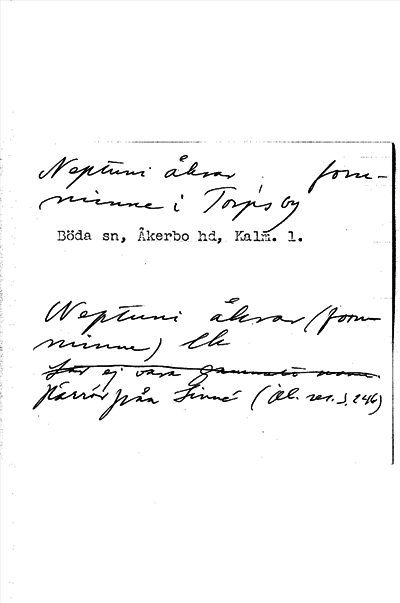 Neptuni åkrar forn-
minne i Torps by
Böda sn, Åkerbo hd, Kalm. l.
Neptuni åkrar (forn-
minne) Ek
Lär ej vara gammalt namn
Härrör från Linné (Öl. res. s. 246)